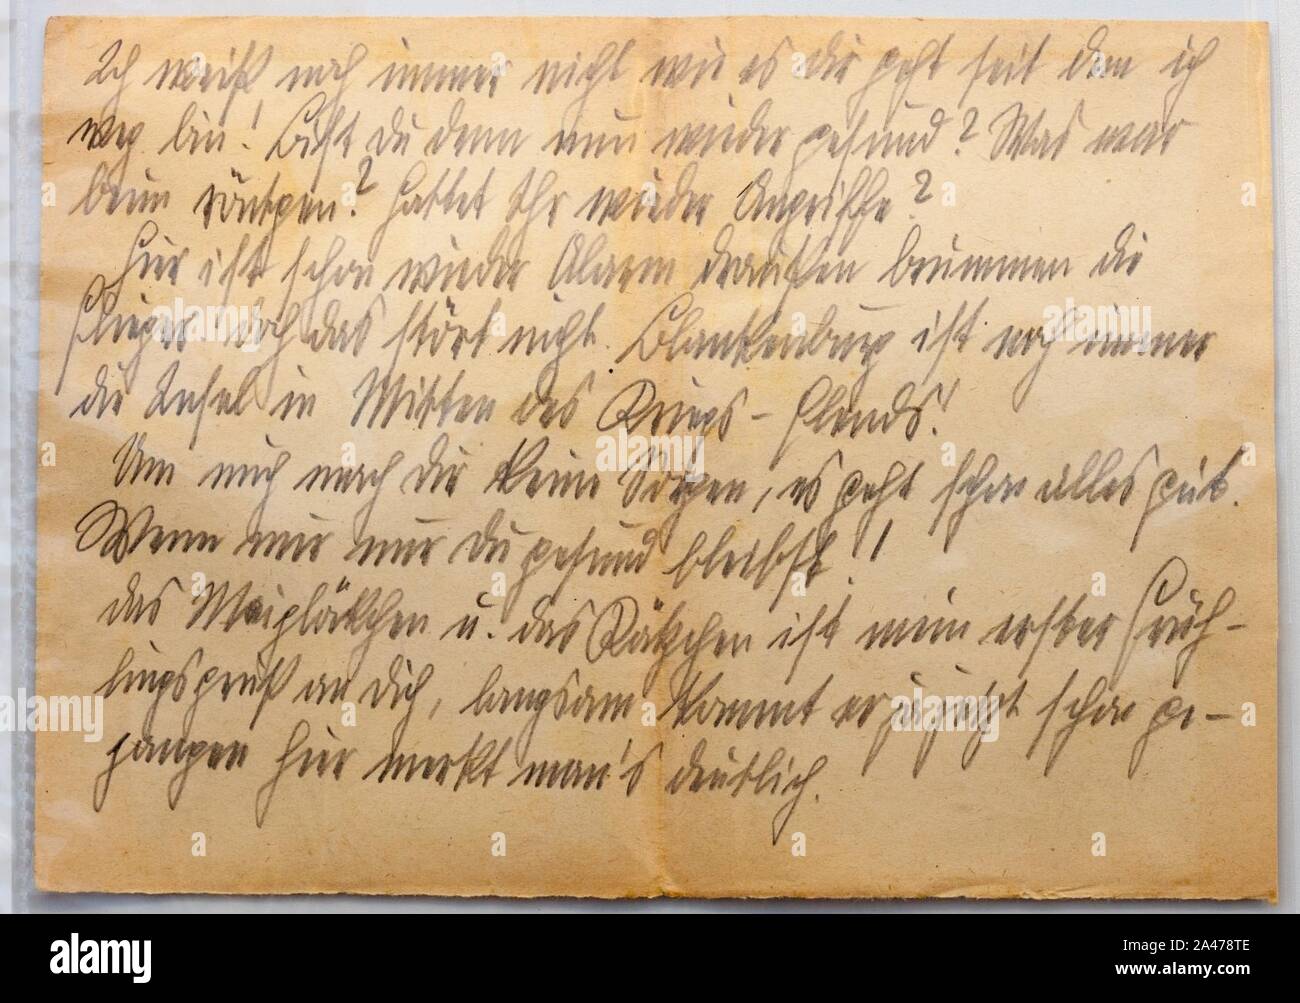 Ich weiß noch immer nicht wie es dir geht seit dem ich
weg bin! Bist du denn nun wieder gesund? Was war
beim röntgen? Hattet Ihr wieder Angriffe?
Hier ist schon wieder Alarm draußen brummen die
Flieger doch das stört nicht. Blankenburg ist noch immer
die Insel in Mitten des Kriegs-Elends!
Um mich mach dir keine Sorgen, es geht schon alles gut.
Wenn mir nur Du gesund bleibst!!
das Maiglökchen u. das Kätzchen ist mein erster Früh-
lingsgruß an Dich, langsam kommt er ja jetzt schon ge-
gangen hier merkt man's deutlich.
a alamy stock photo
alamy
Image ID: 2A478TE
www.alamy.com